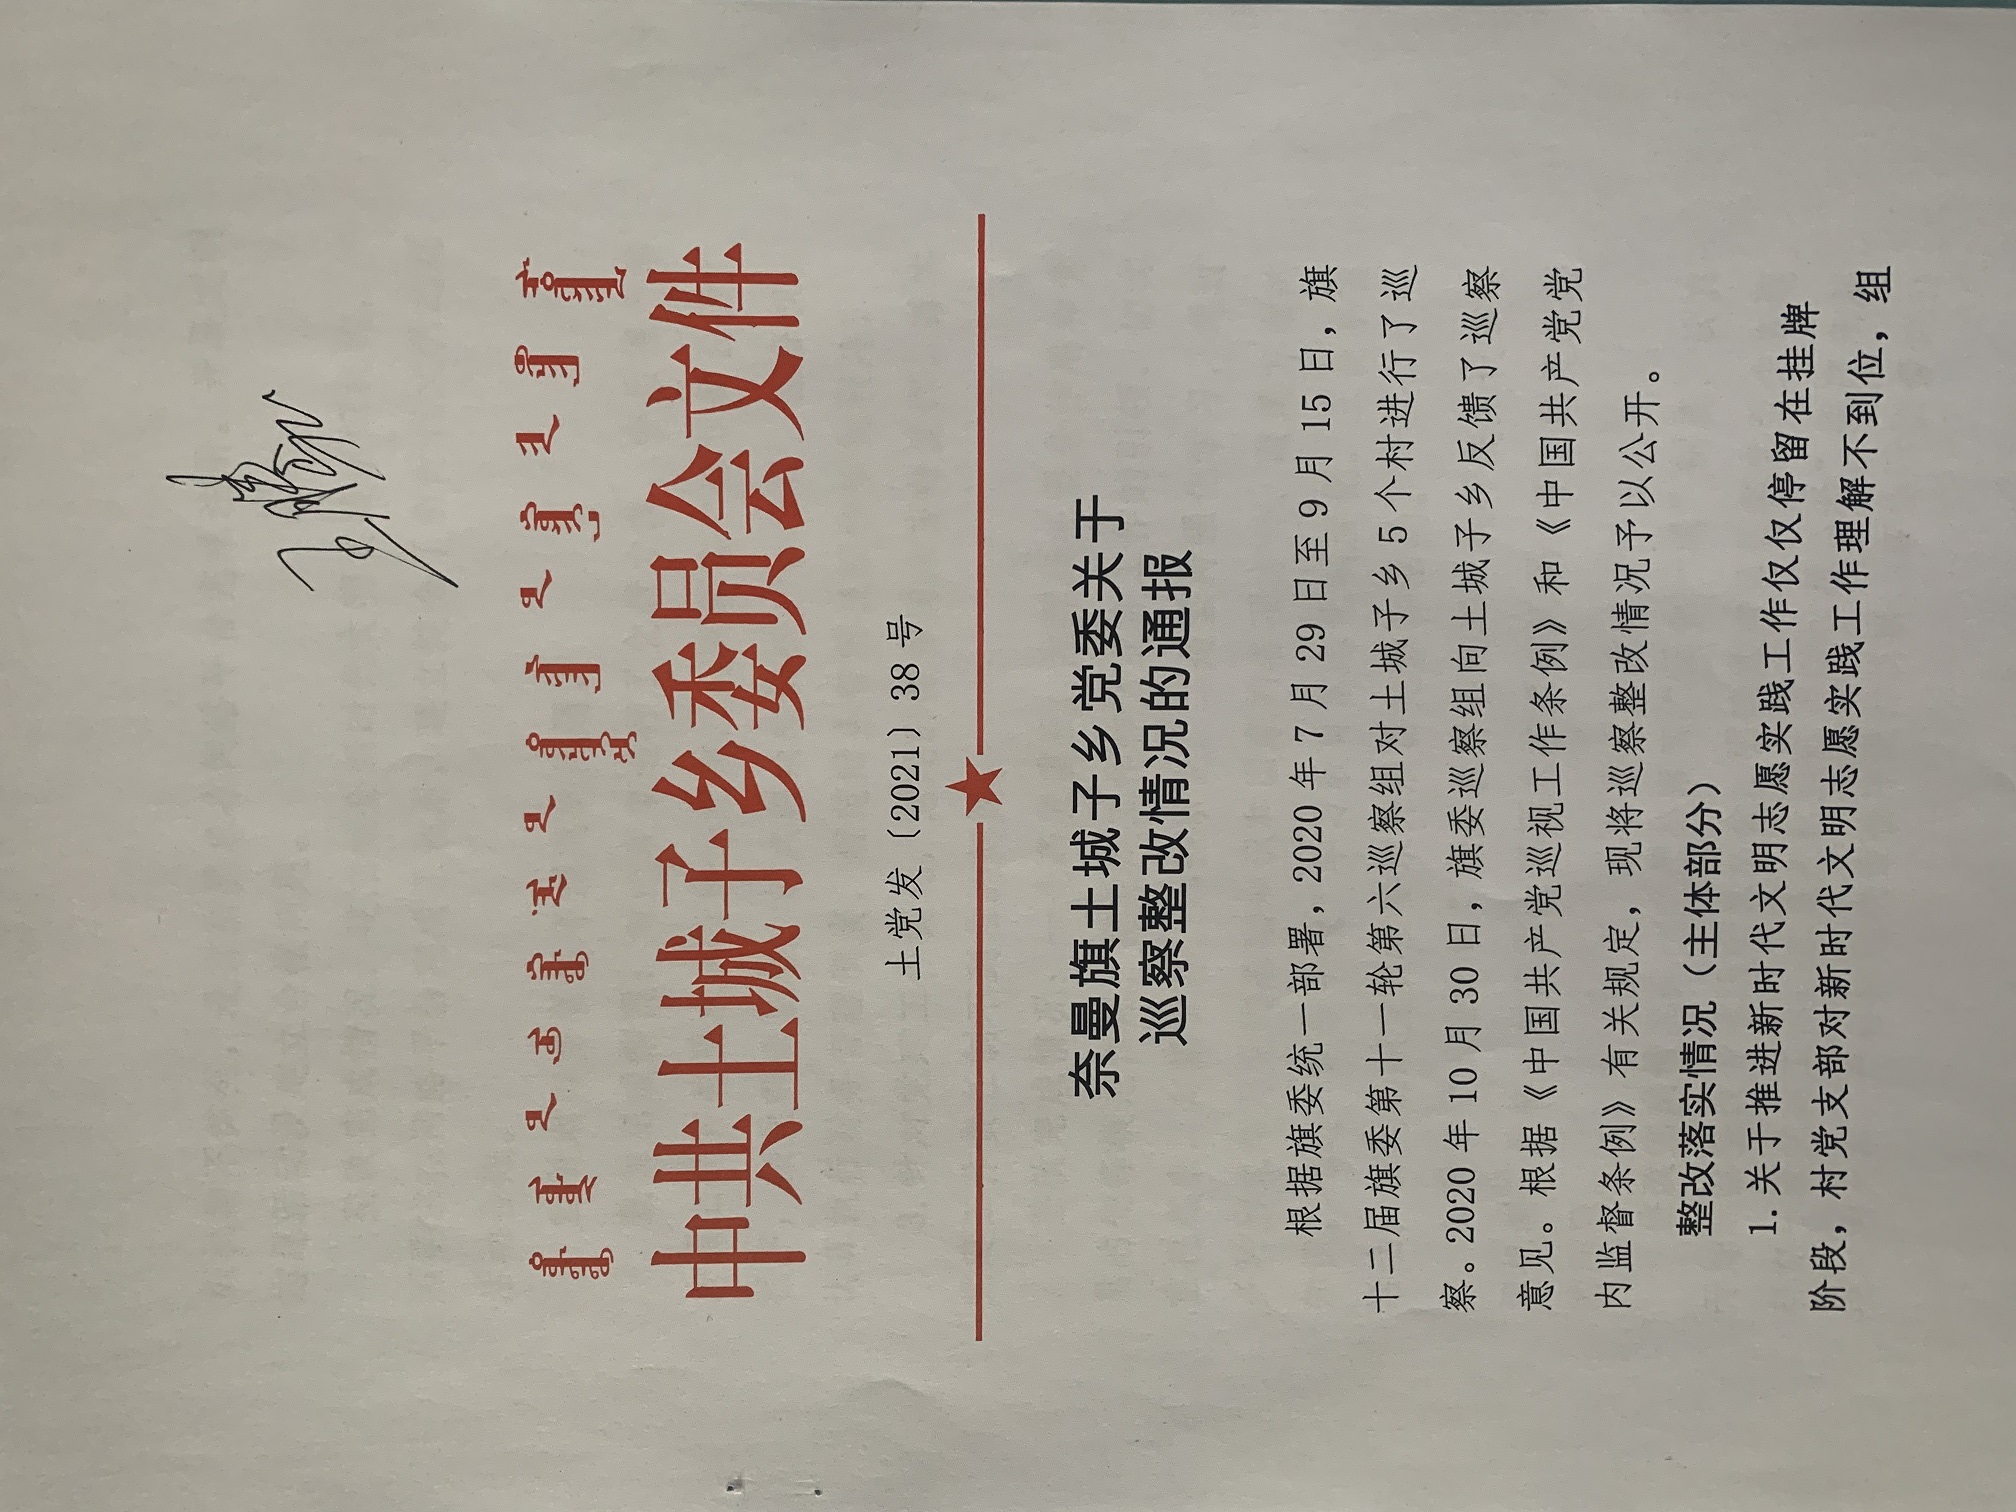 中共土城子乡委员会文件
土党发〔2021〕38 号
奈曼旗土城子乡党委关于
巡察整改情况的通报
根据旗委统一部署，2020 年 7 月 29 日至 9 月 15 日，旗
十二届旗委第十一轮第六巡察组对土城子乡 5 个村进行了巡
察。2020 年 10 月 30 日，旗委巡察组向土城子乡反馈了巡察
意见。根据《中国共产党巡视工作条例》和《中国共产党党
内监督条例》有关规定，现将巡察整改情况予以公开。
整改落实情况（主体部分）
1.关于推进新时代文明志愿实践工作仅仅停留在挂牌
阶段，村党支部对新时代文明志愿实践工作理解不到位，组